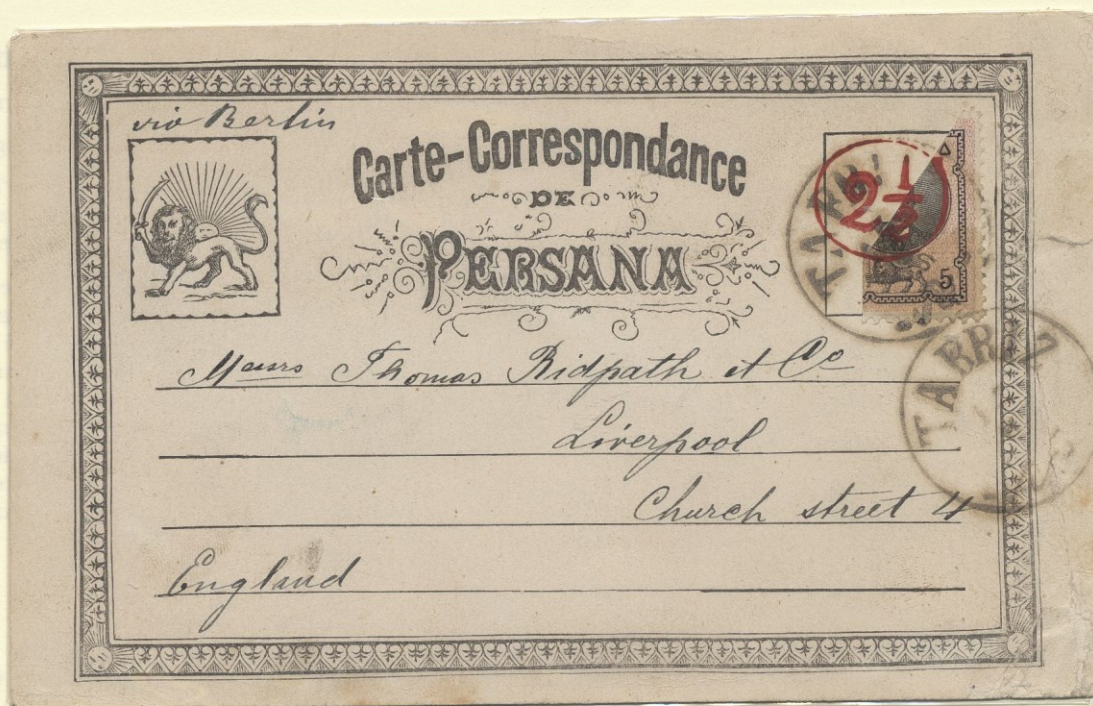 via Berlin
Carte-Correspondance
DE
PERSANA
2 1/2
5
TABRIZ
TABRIZ
Messrs Thomas Ridpath et Co
Liverpool
Church street 4
England